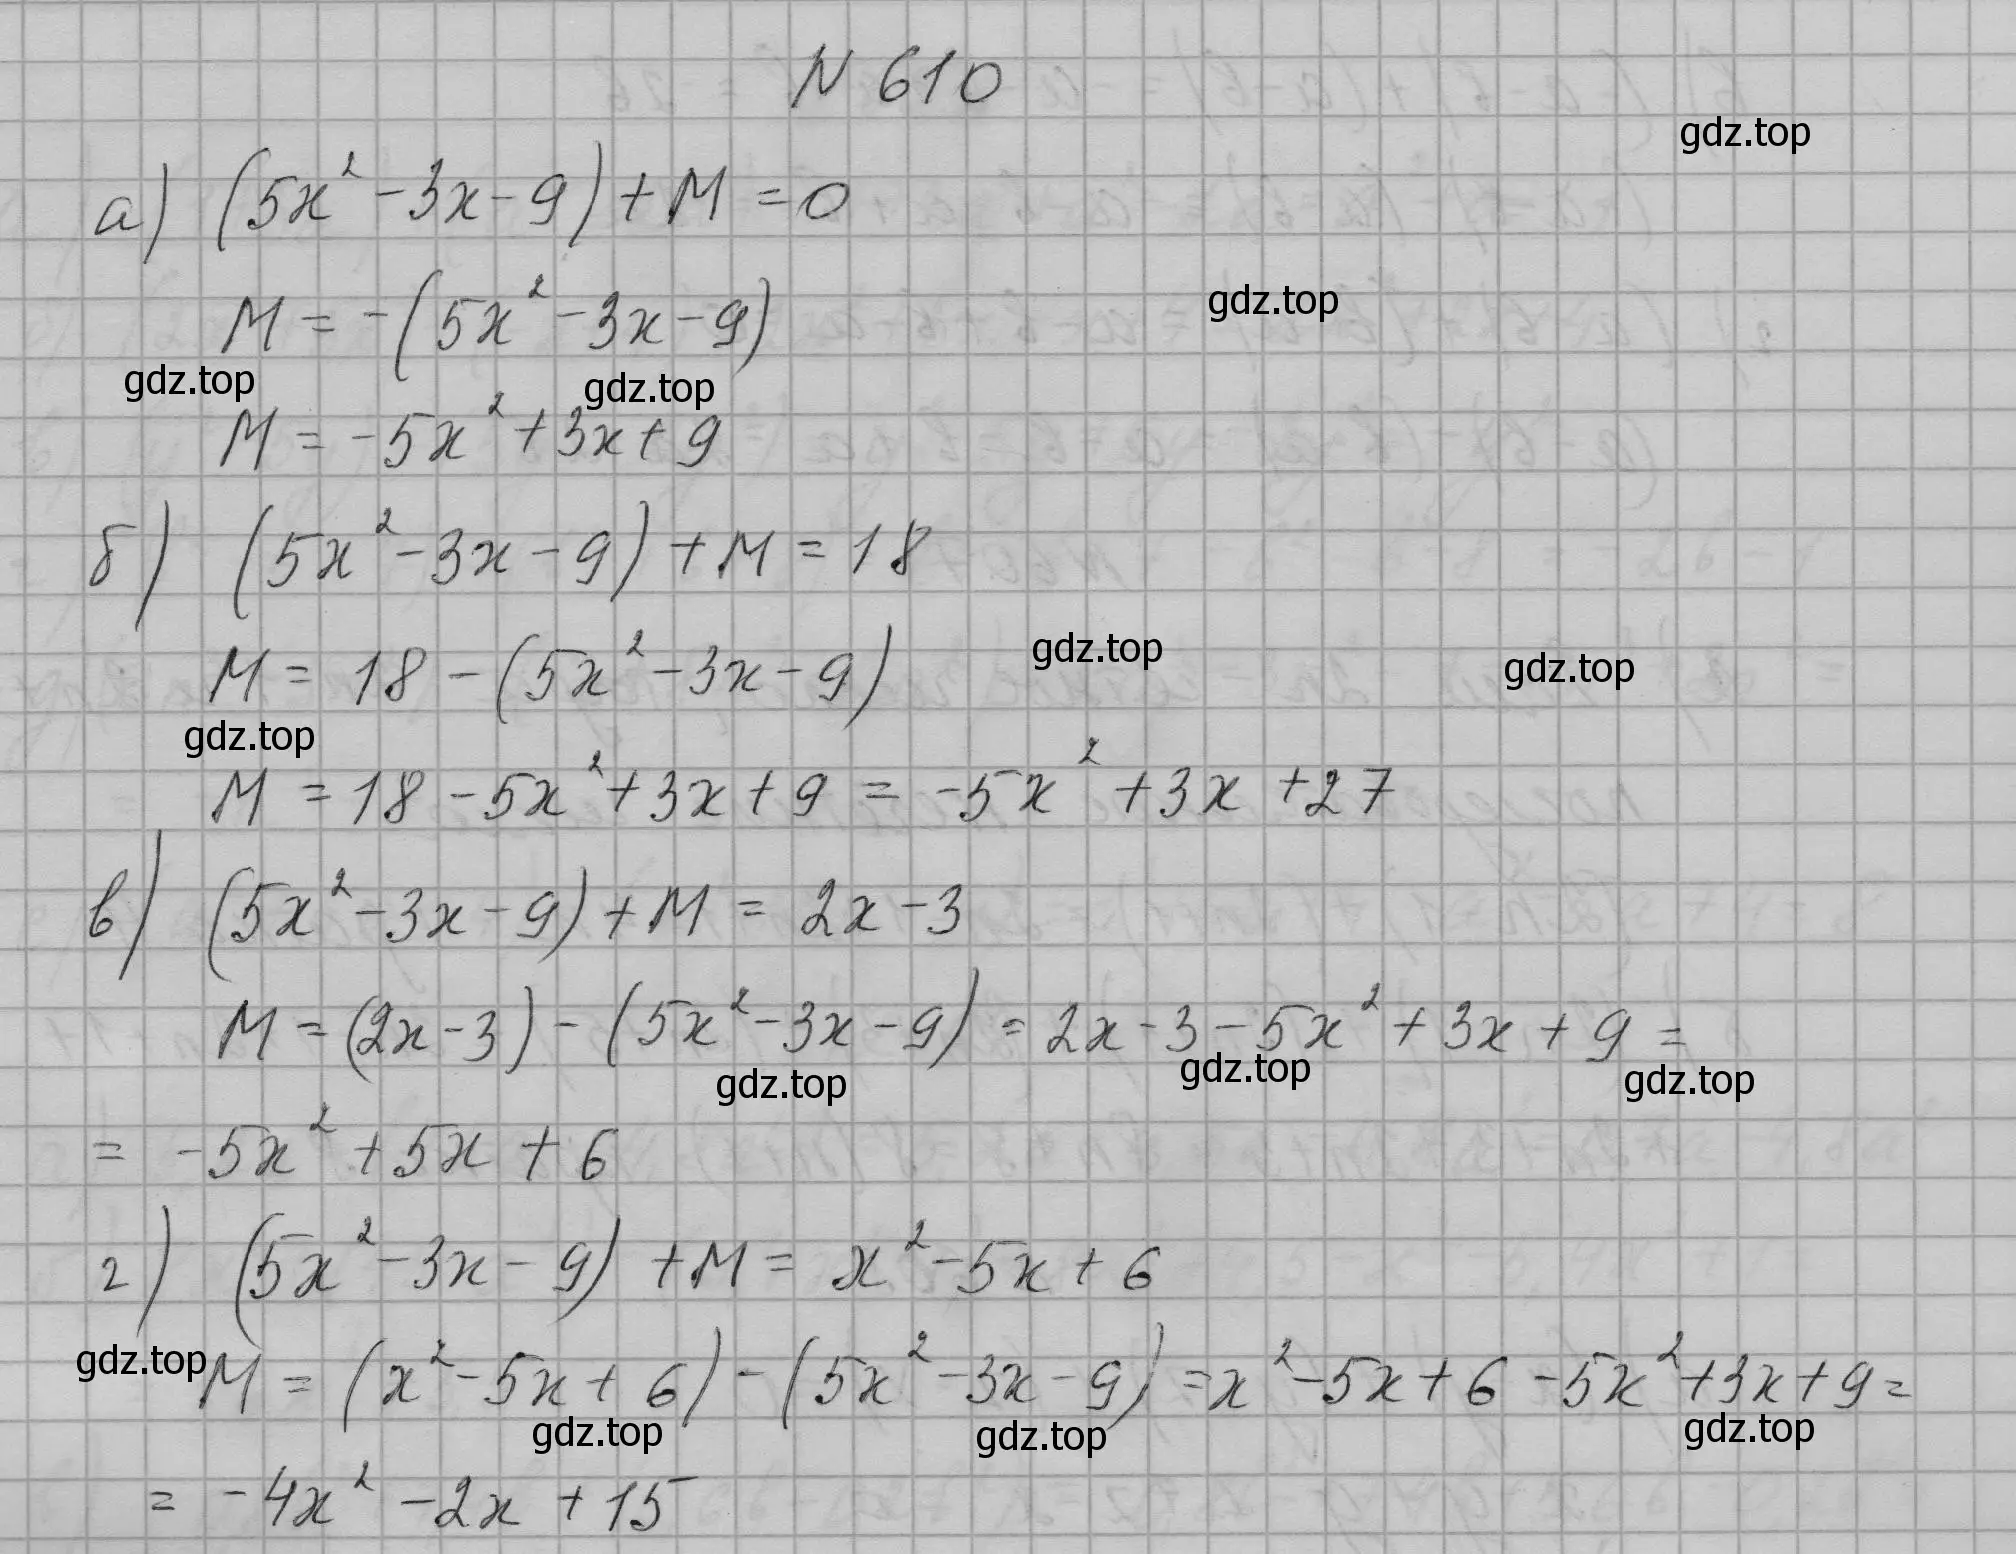 N 610
gdz.top
а) (5x² - 3x - 9) + M = 0
M = -(5x² - 3x - 9)
gdz.top
gdz.top gdz.top
M = -5x² + 3x + 9
б) (5x² - 3x - 9) + M = 18
M = 18 - (5x² - 3x - 9)
gdz.top gdz.top
gdz.top
M = 18 - 5x² + 3x + 9 = -5x² + 3x + 27
в) (5x² - 3x - 9) + M = 2x - 3
M = (2x - 3) - (5x² - 3x - 9) = 2x - 3 - 5x² + 3x + 9 =
gdz.top gdz.top gdz.top
= -5x² + 5x + 6
г) (5x² - 3x - 9) + M = x² - 5x + 6
gdz.top
M = (x² - 5x + 6) - (5x² - 3x - 9) = x² - 5x + 6 - 5x² + 3x + 9 =
gdz.top gdz.top gdz.top
= -4x² - 2x + 15